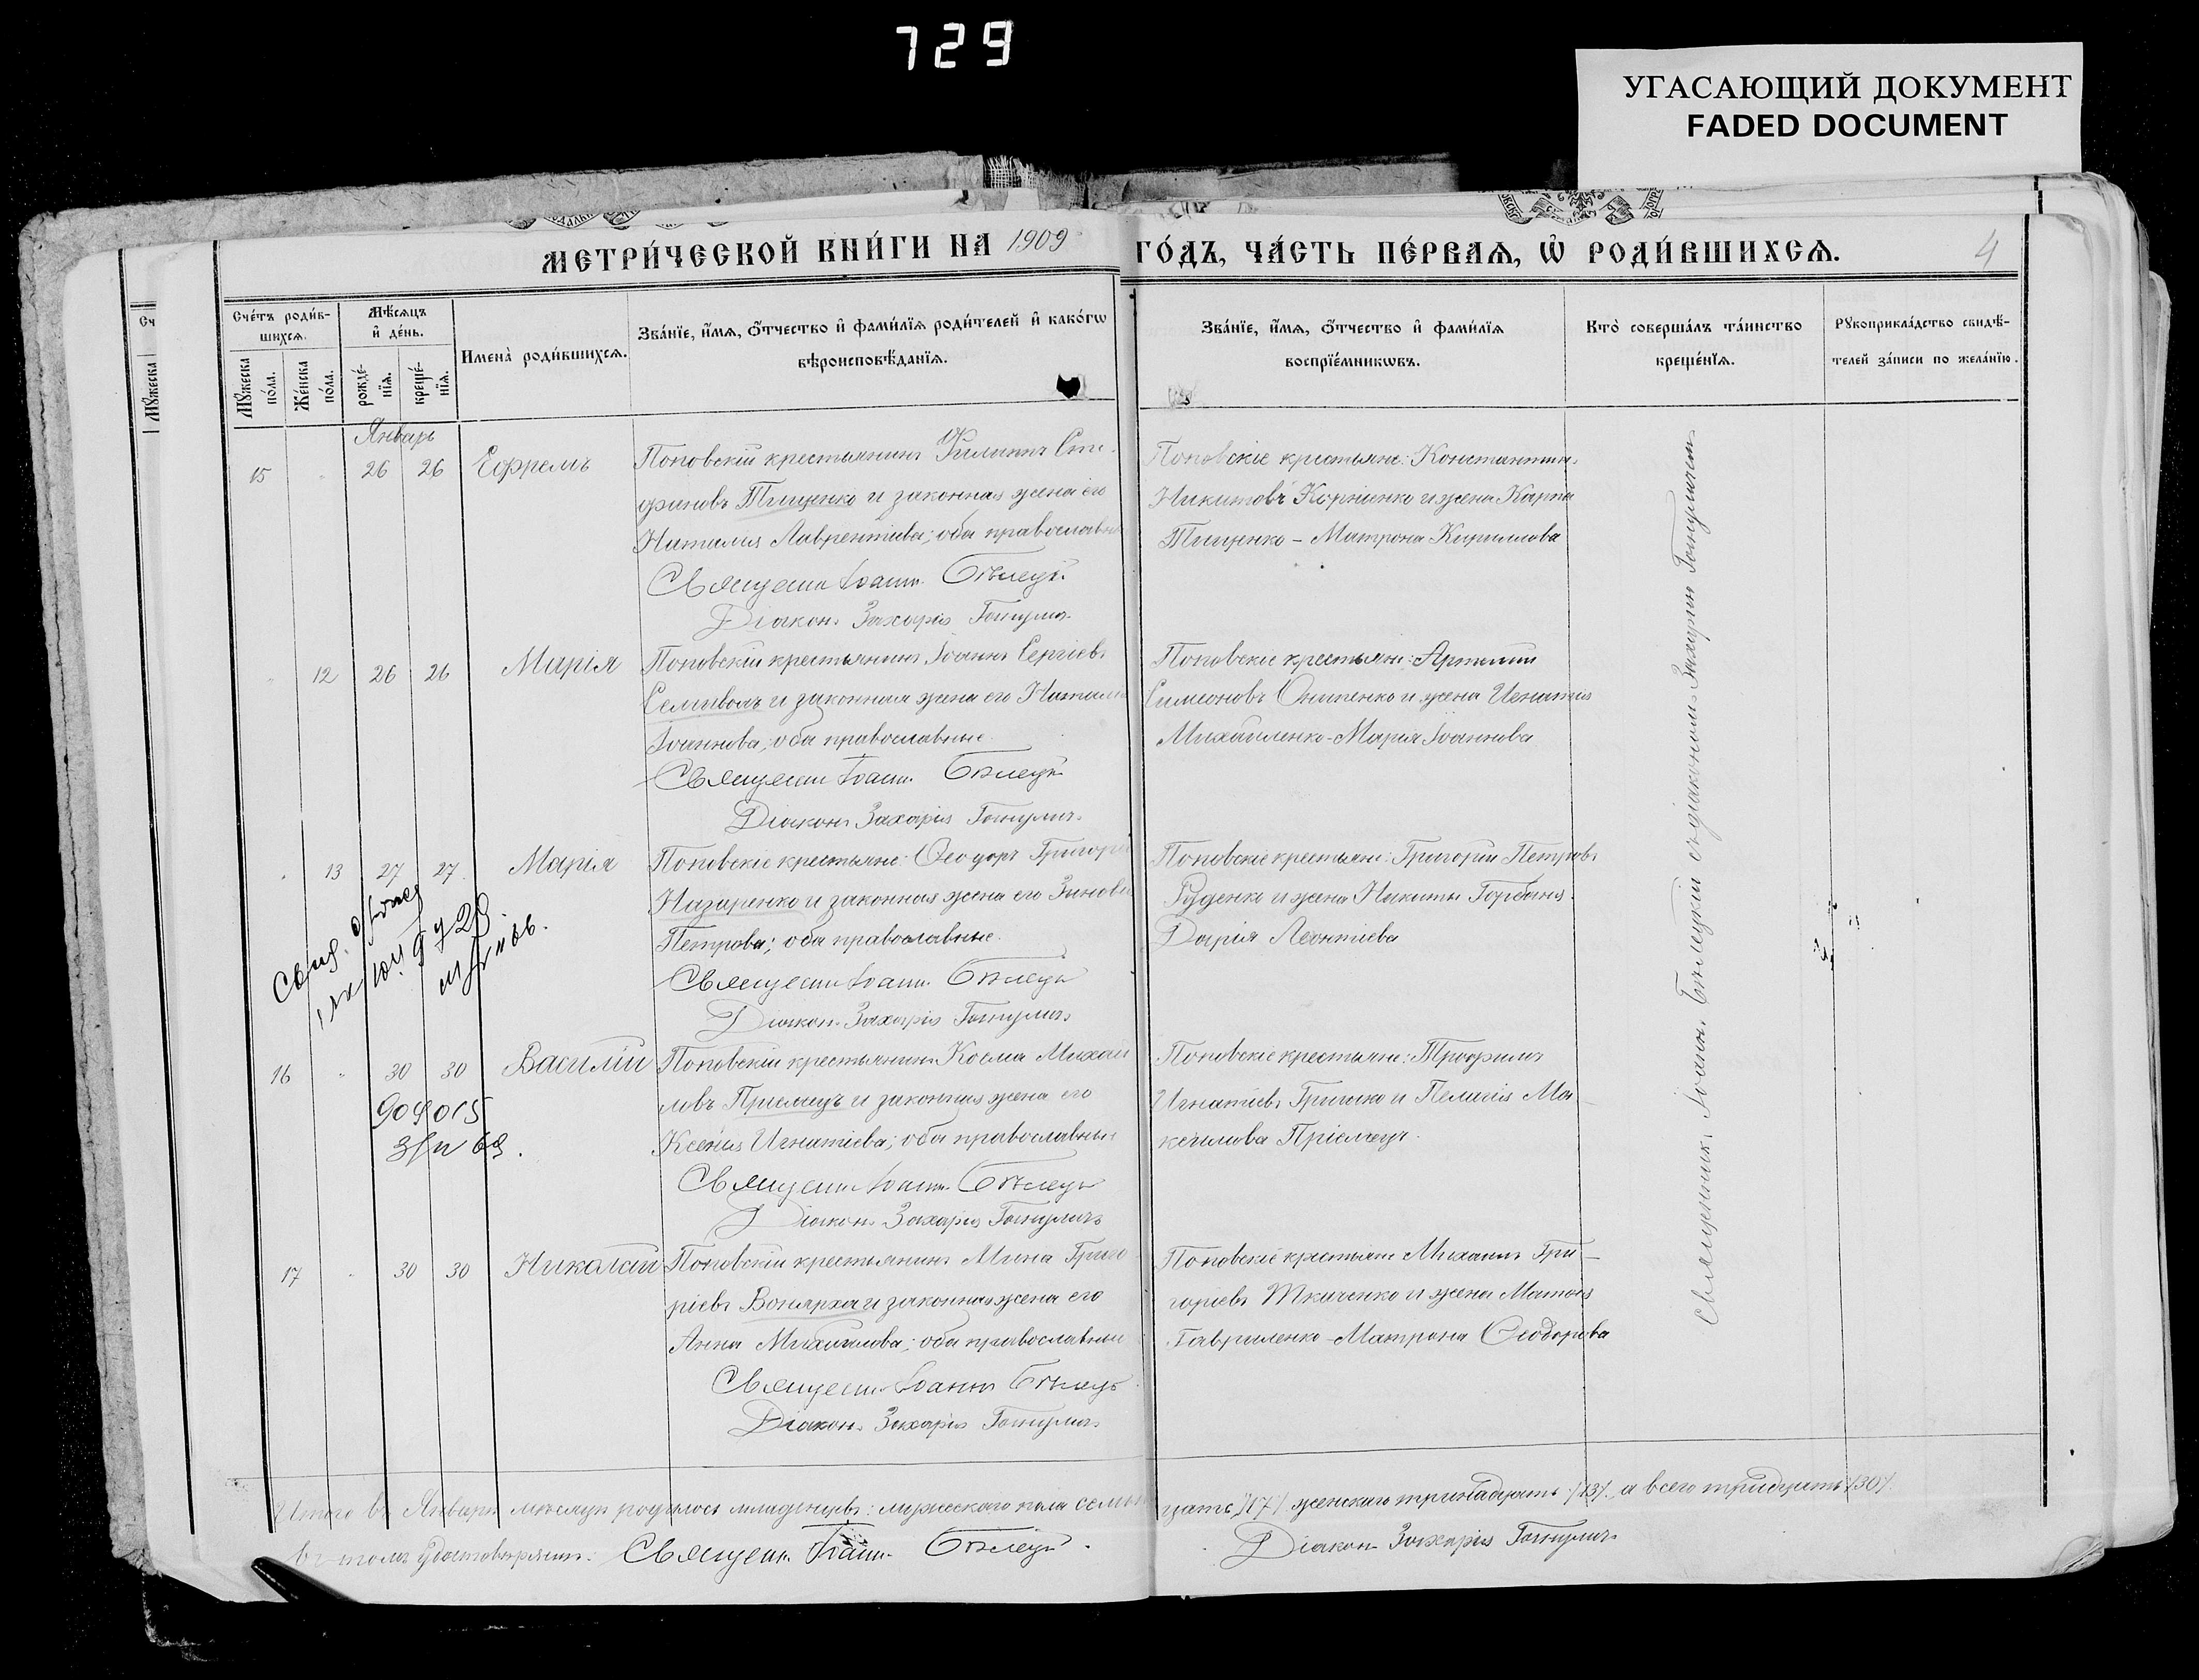 729
УГАСАЮЩИЙ ДОКУМЕНТ
FADED DOCUMENT
МЕТРИ́ЧЕСКОЙ КНИ́ГИ НА 1909 ГО́ДЪ, ЧА́СТЬ ПЕ́РВАѦ, Ѽ РОДИ́ВШИХСѦ.
4
Сч
Мꙋжеска
Сче́тъ роди́в-
шихсѧ.
Мꙋжеска по́ла.
Же́нска по́ла.
Мѣ́сѧцъ
и҆ де́нь.
рожде́-
нїѧ.
креще́-
нїѧ.
Имена̀ роди́вшихсѧ.
Зва́нїе, и҆́мѧ, ѻ҆́тчество и҆ фами́лїѧ роди́телей и҆ како́гѡ
вѣроисповѣ́данїѧ.
Зва́нїе, и҆́мѧ, ѻ҆́тчество и҆ фами́лїѧ
воспрїе́мникѡвъ.
Кто̀ соверша́лъ та́инство
креще́нїѧ.
Рꙋкоприкла́дство свидѣ́-
телей за́писи по жела́нїю.
Январь
15 26 26 Ефремъ
Поповскій крестьянинъ Филиппъ Сте-
фановъ Тищенко и законная жена его
Наталия Лаврентіева; оба православн
Священ. Іоанн. Бѣлец
Діакон. Захарія Гопулич.
Поповскіе крестьяне: Константин
Никитовъ Корниенко и жена Карпа
Тищенко - Матрона Кириллова
12 26 26 Марія
Поповскій крестьянинъ Іоаннъ Сергіевъ
Семиволъ и законная жена его Наталія
Іоаннова; оба православные
Священ. Іоанн. Бѣлец
Діакон. Захарія Гопулич.
Поповскіе крестьяне: Артемий
Симеоновъ Онипенко и жена Игнатия
Михайленко - Марія Іоаннова
13 27 27 Марія
Поповскіе крестьяне: Ѳеодоръ Григорі
Назаренко и законная жена его Зинові
Петрова; оба православные.
Священ. Іоанн. Бѣлец
Діакон. Захарія Гопулич.
Поповскіе крестьяне: Григорій Петровъ
Руденко и жена Никиты Горбаня
Дарія Леонтіева
16 30 30 Василій
904015
Поповскій крестьянинъ Косма Михаи
ловъ Приемецъ и законная жена его
Ксенія Игнатіева; оба православные
Священ. Іоанн. Бѣлец
Діакон. Захарія Гопулич
Поповскіе крестьяне: Трофимъ
Игнатіевъ Гришко и Пелагія Ма-
ксимова Пріемецъ.
17 30 30 Николай
Поповскій крестьянинъ Мина Григо
ріевъ Вонярха и законная жена его
Анна Михайлова; оба православные
Священ. Іоанн Бѣлец
Діакон. Захарія Гопулич.
Поповскіе крестьяне Михаилъ Гри-
горіевъ Ткаченко и жена
Гавриленко - Матрона Ѳеодорова
Священникъ Іоаннъ Бѣлецкій съ діакономъ Захаріемъ
Итого въ Январѣ мѣсяцѣ родилось младенцевъ: мужескаго пола семнадцать /17/ женскаго тринадцать /13/, а всего тридцать /30/.
въ томъ удостовѣряемъ: Священ. Іоанн. Бѣлец. Діакон Захарія Гопулич